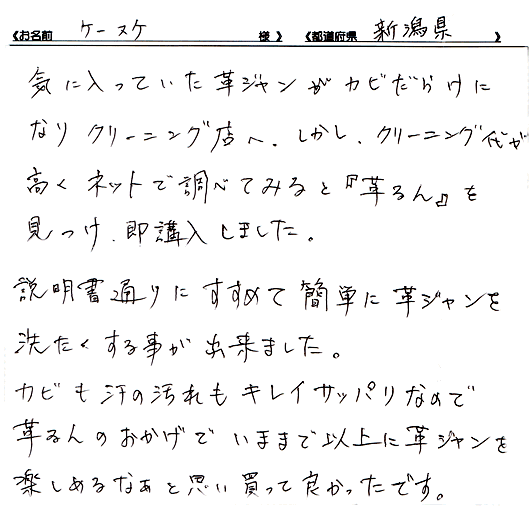 《お名前 ケースケ 様》 《都道府県 新潟県 》
気に入っていた革ジャンがカビだらけに
なりクリーニング店へ。しかし、クリーニング代が
高くネットで調べてみると『革るん』を
見つけ、即購入しました。
説明書通りにすすめて簡単に革ジャンを
洗たくする事が出来ました。
カビも汗の汚れもキレイサッパリなので
革るんのおかげでいままで以上に革ジャンを
楽しめるなぁと思い買って良かったです。